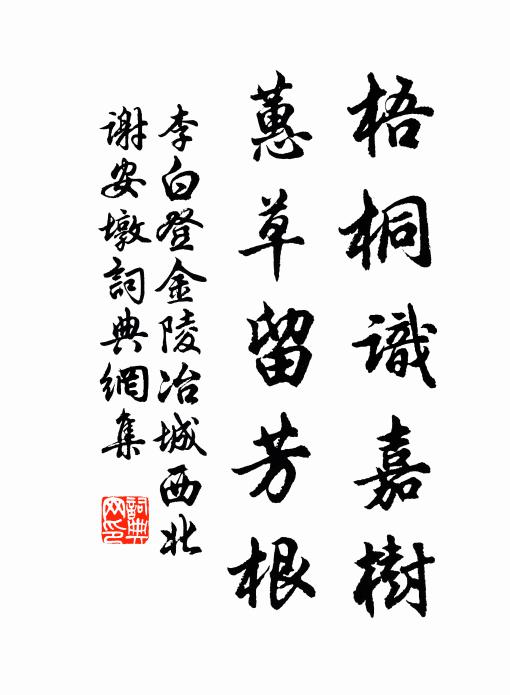 梧桐識嘉樹
蕙草留芳根
李白登金陵冶城西北
謝安墩詞典網集
詞典網印